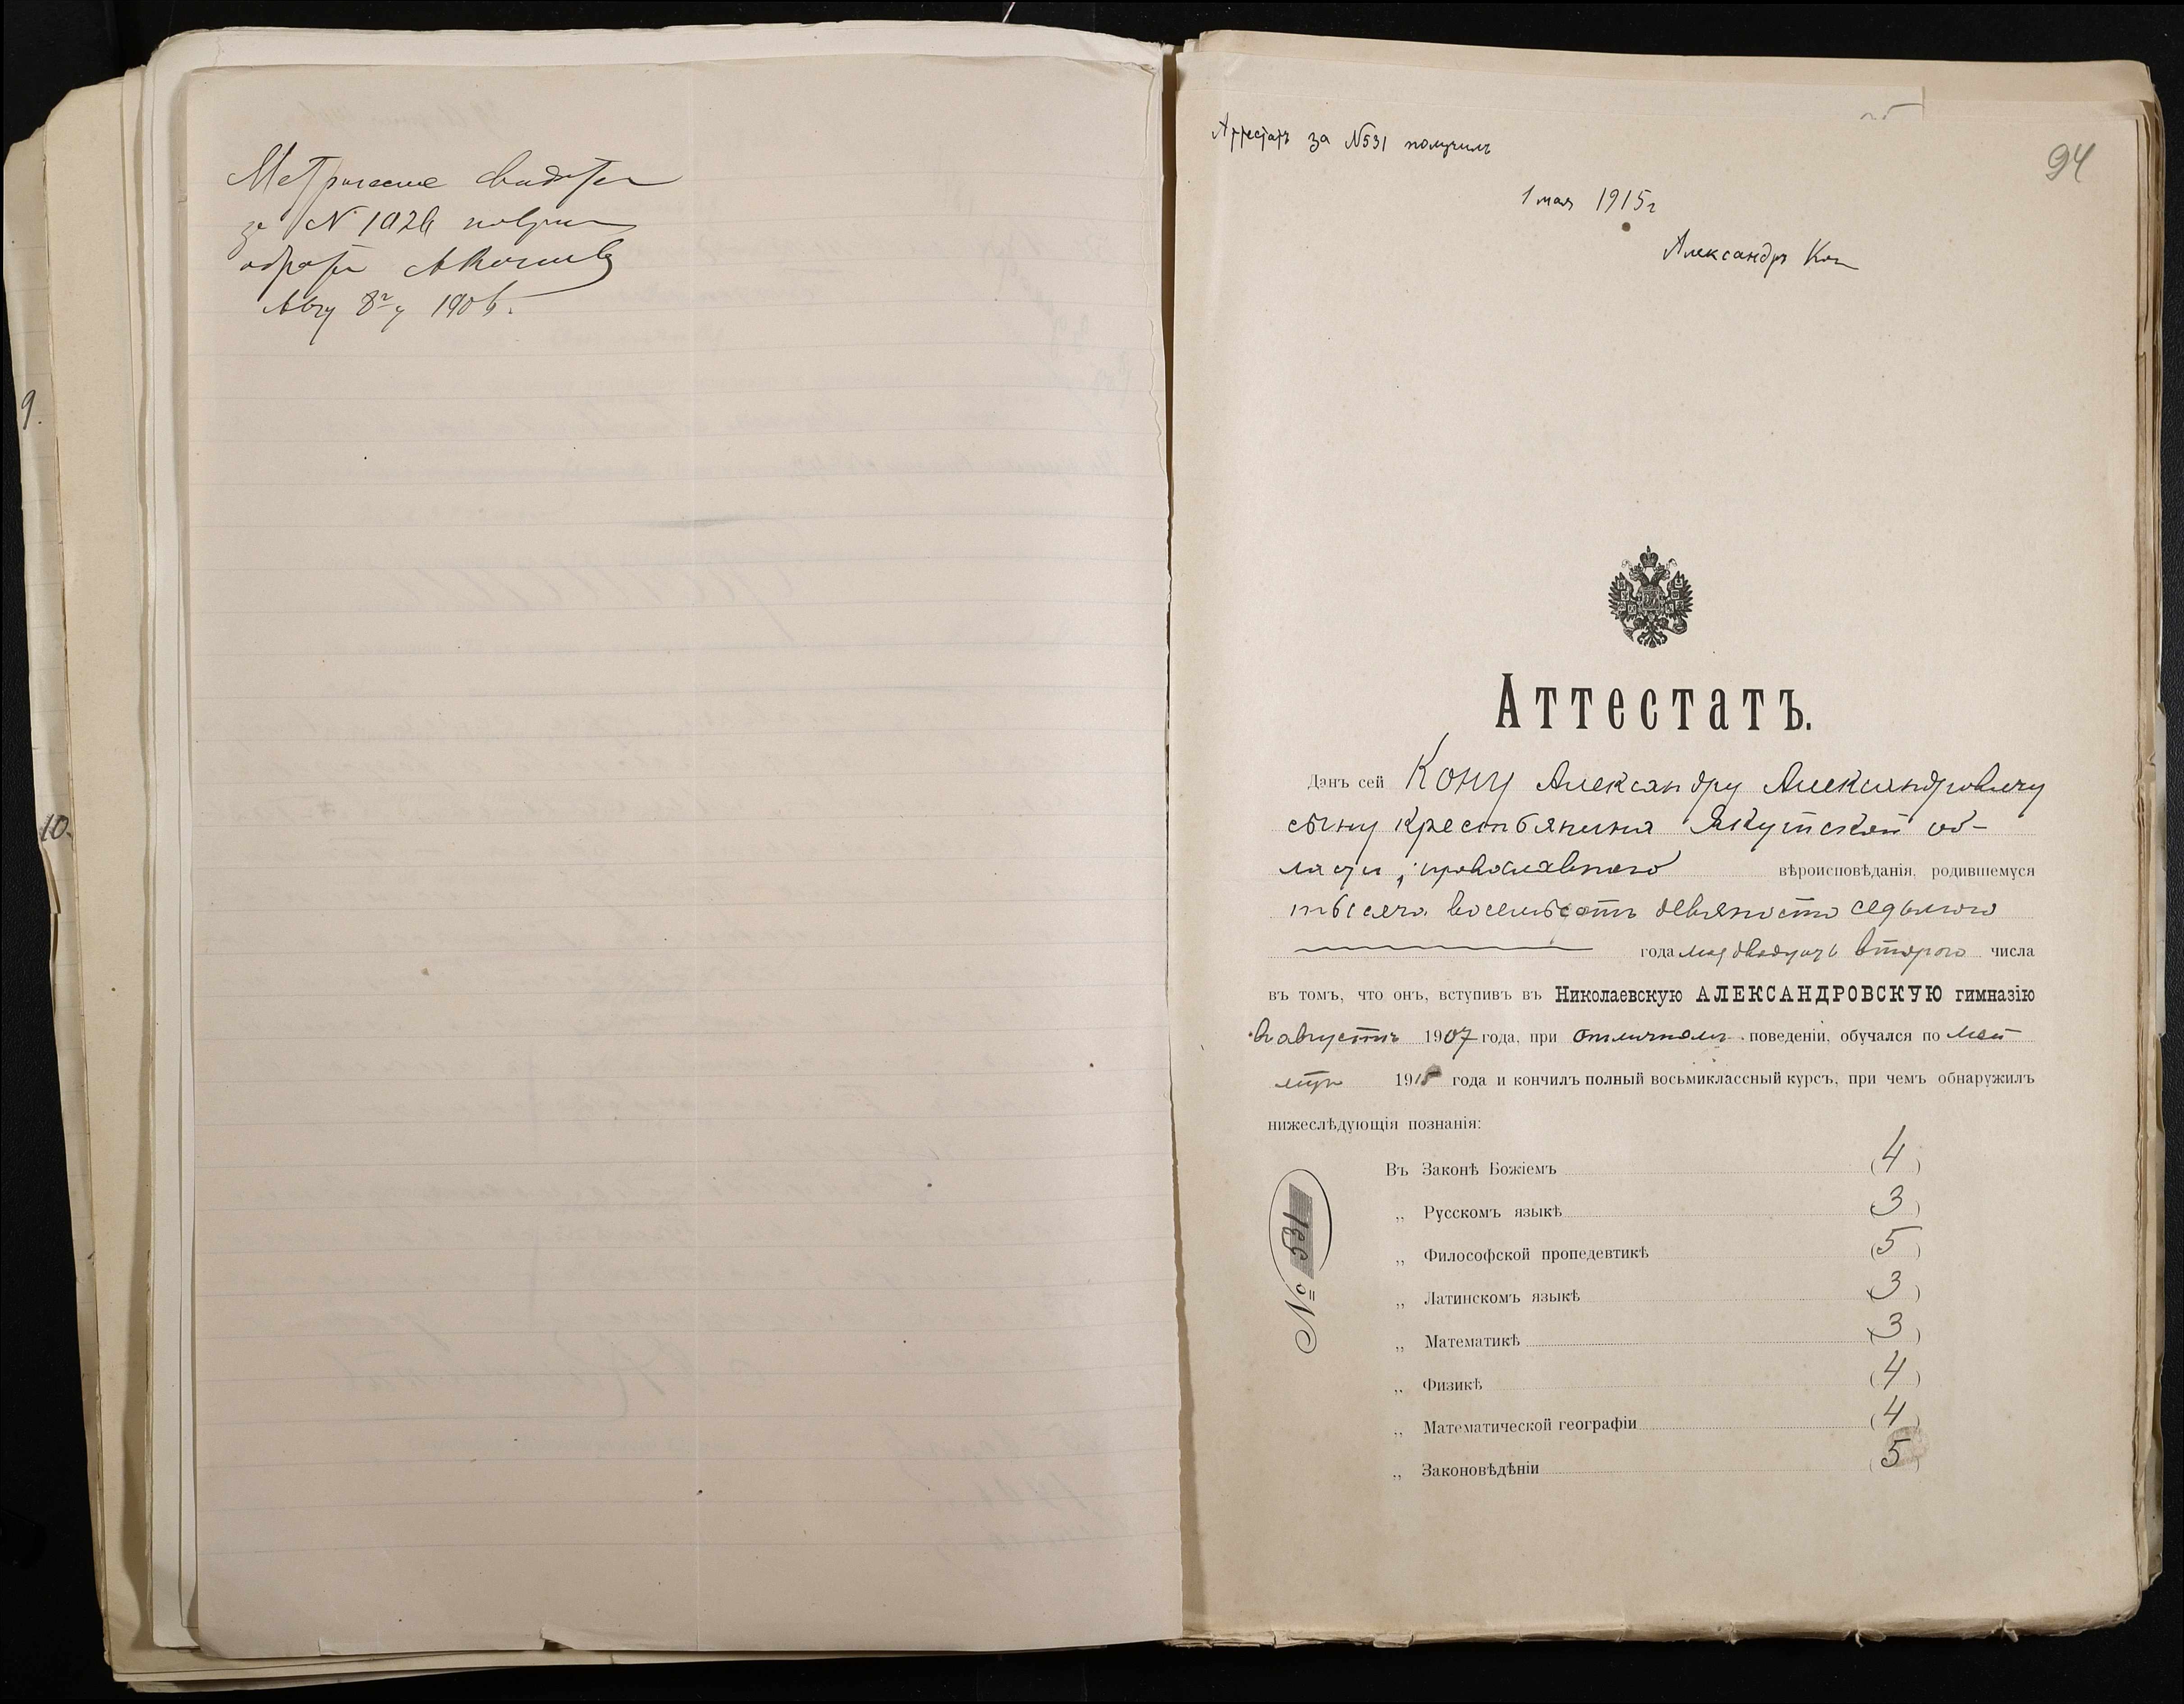 9.
10.
Метрическое свидетел
за № 1926 получил
обратно
Авгу 8го 1906.
Аттестатъ за №531 получилъ
94
1 мая 1915г
Александръ Кон
Аттестатъ.
Данъ сей Кону Александру Александровичу
сыну крестьянина Якутской об-
ласти, православнаго вѣроисповѣданія, родившемуся
тысяча восемьсотъ девяносто седьмого
года мая двадцать второго числа
въ томъ, что онъ, вступивъ въ Николаевскую АЛЕКСАНДРОВСКУЮ гимназію
въ августѣ 1907 года, при отличномъ поведеніи, обучался по май
1915 года и кончилъ полный восьмиклассный курсъ, при чемъ обнаружилъ
нижеслѣдующія познанія:
Въ Законѣ Божіемъ (4)
„ Русскомъ языкѣ (3)
„ Философской пропедевтикѣ (5)
„ Латинскомъ языкѣ (3)
„ Математикѣ (3)
„ Физикѣ (4)
„ Математической географіи (4)
„ Законовѣдѣніи (5)
№ 531